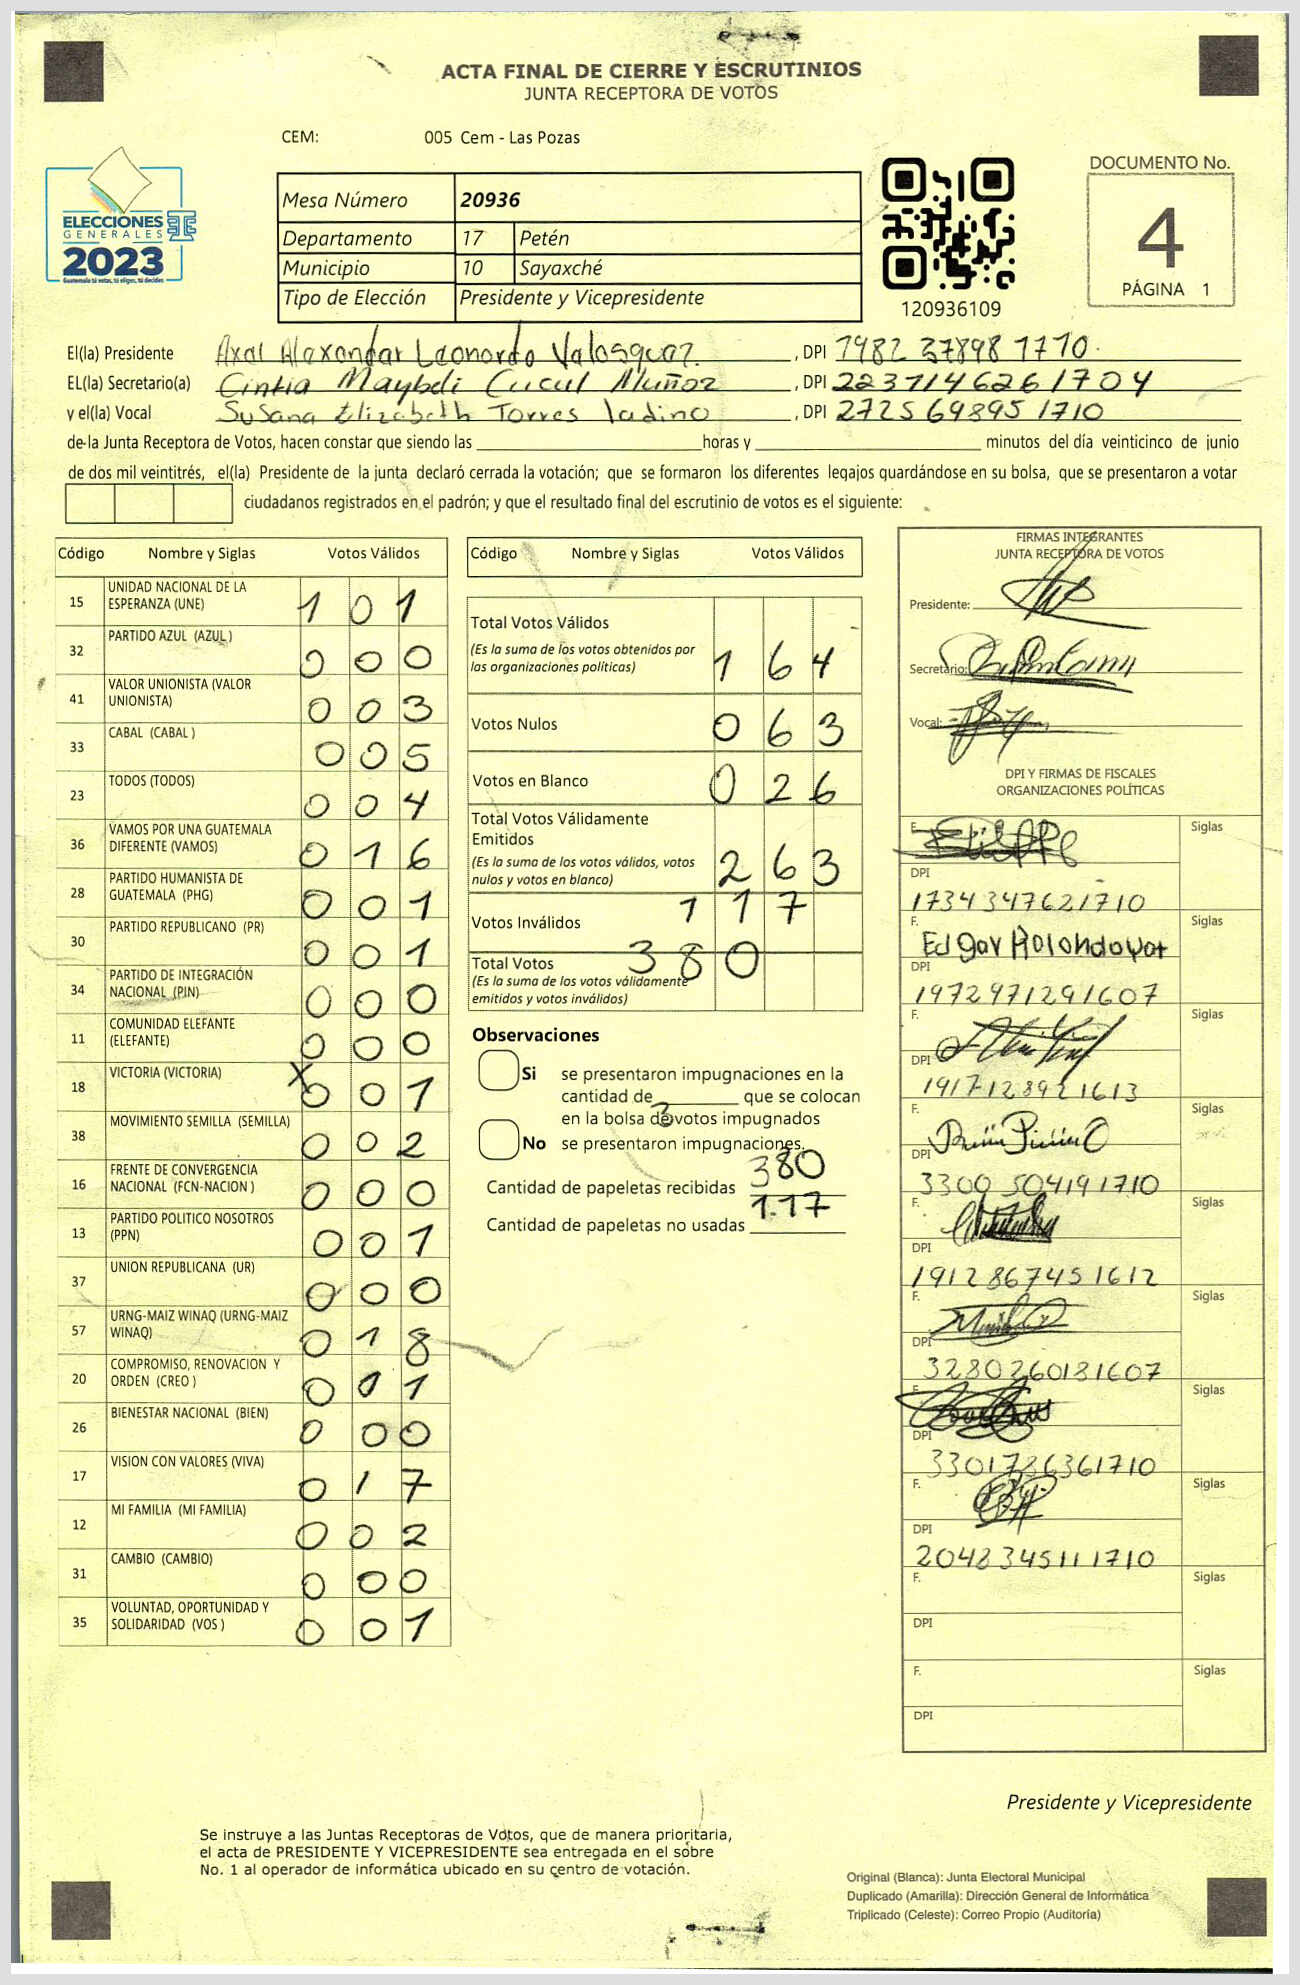 ACTA FINAL DE CIERRE Y ESCRUTINIOS
JUNTA RECEPTORA DE VOTOS
CEM: 005 Cem - Las Pozas
ELECCIONES
GENERALES
2023
Guatemala tú votas, tú eliges, tú decides
Mesa Número 20936
Departamento 17 Petén
Municipio 10 Sayaxché
Tipo de Elección Presidente y Vicepresidente
120936109
DOCUMENTO No.
4
PÁGINA 1
El(la) Presidente Axal Alaxandar Leonardo Valasquaz, DPI 1982 37898 1710
EL(la) Secretario(a) Cintia Maybeli Cucul Muñoz, DPI 2237146261704
y el(la) Vocal Susana Elizabeth Torres Ladino, DPI 2725698951710
de la Junta Receptora de Votos, hacen constar que siendo las horas y minutos del día veinticinco de junio
de dos mil veintitrés, el(la) Presidente de la junta declaró cerrada la votación; que se formaron los diferentes legajos guardándose en su bolsa, que se presentaron a votar
ciudadanos registrados en el padrón; y que el resultado final del escrutinio de votos es el siguiente:
Código Nombre y Siglas Votos Válidos
15 UNIDAD NACIONAL DE LA ESPERANZA (UNE) 1 0 1
32 PARTIDO AZUL (AZUL) 0 0 0
41 VALOR UNIONISTA (VALOR UNIONISTA) 0 0 3
33 CABAL (CABAL ) 0 0 5
23 TODOS (TODOS) 0 0 4
36 VAMOS POR UNA GUATEMALA DIFERENTE (VAMOS) 0 1 6
28 PARTIDO HUMANISTA DE GUATEMALA (PHG) 0 0 1
30 PARTIDO REPUBLICANO (PR) 0 0 1
34 PARTIDO DE INTEGRACIÓN NACIONAL (PIN) 0 0 0
11 COMUNIDAD ELEFANTE (ELEFANTE) 0 0 0
18 VICTORIA (VICTORIA) X 0 0 1
38 MOVIMIENTO SEMILLA (SEMILLA) 0 0 2
16 FRENTE DE CONVERGENCIA NACIONAL (FCN-NACION ) 0 0 0
13 PARTIDO POLITICO NOSOTROS (PPN) 0 0 1
37 UNION REPUBLICANA (UR) 0 0 0
57 URNG-MAIZ WINAQ (URNG-MAIZ WINAQ) 0 1 8
20 COMPROMISO, RENOVACION Y ORDEN (CREO ) 0 1
26 BIENESTAR NACIONAL (BIEN) 0 0 0
17 VISION CON VALORES (VIVA) 0 1 7
12 MI FAMILIA (MI FAMILIA) 0 0 2
31 CAMBIO (CAMBIO) 0 0 0
35 VOLUNTAD, OPORTUNIDAD Y SOLIDARIDAD (VOS ) 0 0 1
Código Nombre y Siglas Votos Válidos
Total Votos Válidos 1 6 4
(Es la suma de los votos obtenidos por
las organizaciones políticas)
Votos Nulos 0 6 3
Votos en Blanco 0 2 6
Total Votos Válidamente
Emitidos 2 6 3
(Es la suma de los votos válidos, votos
nulos y votos en blanco)
Votos Inválidos 1 1 7
Total Votos 3 8 0
(Es la suma de los votos válidamente
emitidos y votos inválidos)
Observaciones
Si se presentaron impugnaciones en la
cantidad de 3 que se colocan
en la bolsa de votos impugnados
No se presentaron impugnaciones.
Cantidad de papeletas recibidas 380
Cantidad de papeletas no usadas 117
FIRMAS INTEGRANTES
JUNTA RECEPTORA DE VOTOS
Presidente:
Secretario:
Vocal:
DPI Y FIRMAS DE FISCALES
ORGANIZACIONES POLÍTICAS
F. Siglas
DPI
1734347621710
F. Edgar Rolando Siglas
DPI
1972971291607
F. Siglas
DPI
1917128921613
F. Siglas
DPI
3300 504191710
F. Siglas
DPI
1912867451612
F. Siglas
DPI
3280260181607
F. Siglas
DPI
3301786361710
F. Siglas
DPI
2048345111710
F. Siglas
DPI
F. Siglas
DPI
Presidente y Vicepresidente
Se instruye a las Juntas Receptoras de Votos, que de manera prioritaria,
el acta de PRESIDENTE Y VICEPRESIDENTE sea entregada en el sobre
No. 1 al operador de informática ubicado en su centro de votación.
Original (Blanca): Junta Electoral Municipal
Duplicado (Amarilla): Dirección General de Informática
Triplicado (Celeste): Correo Propio (Auditoría)